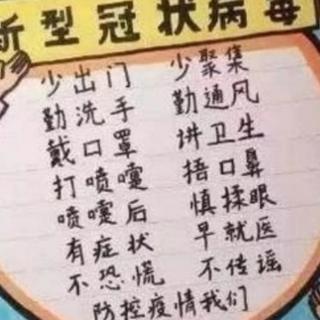 新型冠状病毒
少出门 少聚集
勤洗手 勤通风
戴口罩 讲卫生
打喷嚏 捂口鼻
喷嚏后 慎揉眼
有症状 早就医
不恐慌 不传谣
防控疫情我们